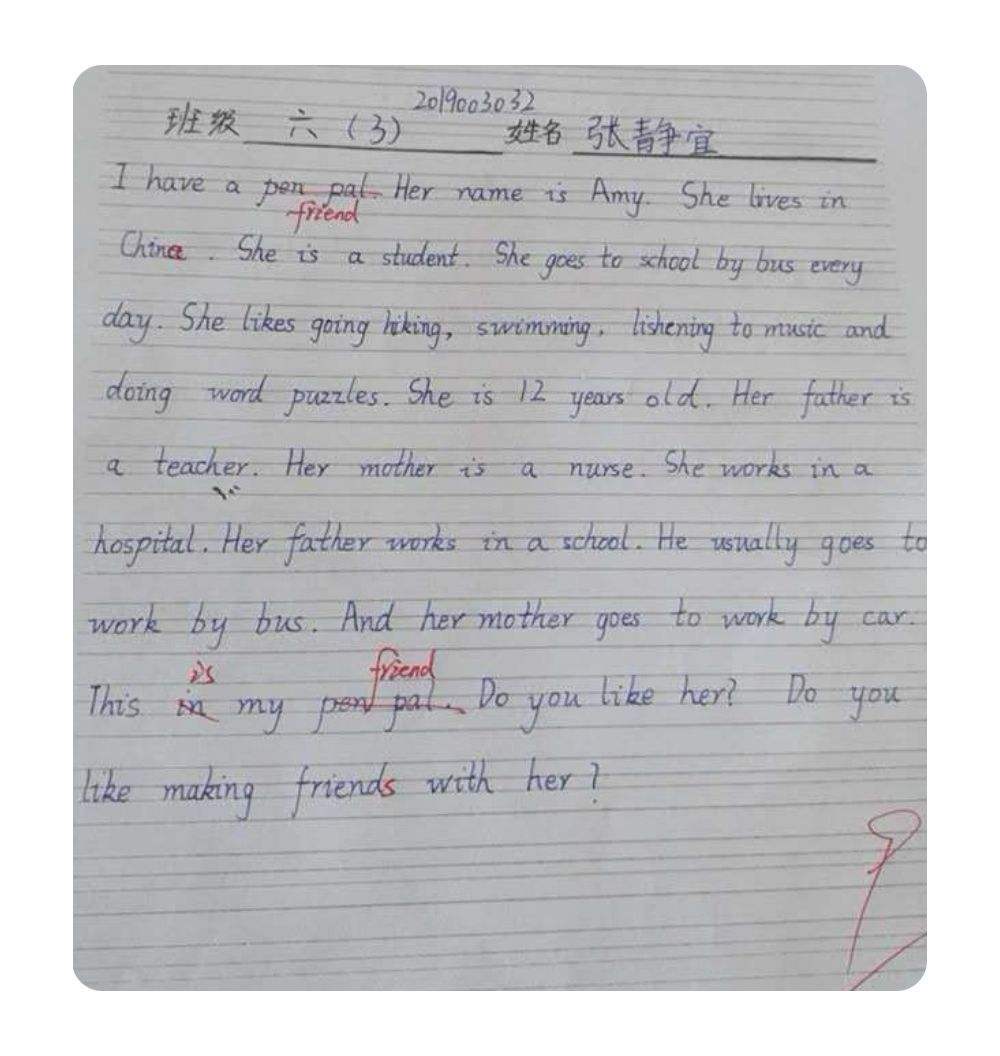 2019003032
班级 六（3） 姓名 张静宜
I have a pen pal. Her name is Amy. She lives in
friend
China. She is a student. She goes to school by bus every
day. She likes going hiking, swimming, lishening to music and
doing word puzzles. She is 12 years old. Her father is
a teacher. Her mother is a nurse. She works in a
hospital. Her father works in a school. He usually goes to
work by bus. And her mother goes to work by car.
is friend
This in my pen pal. Do you like her? Do you
like making friends with her?